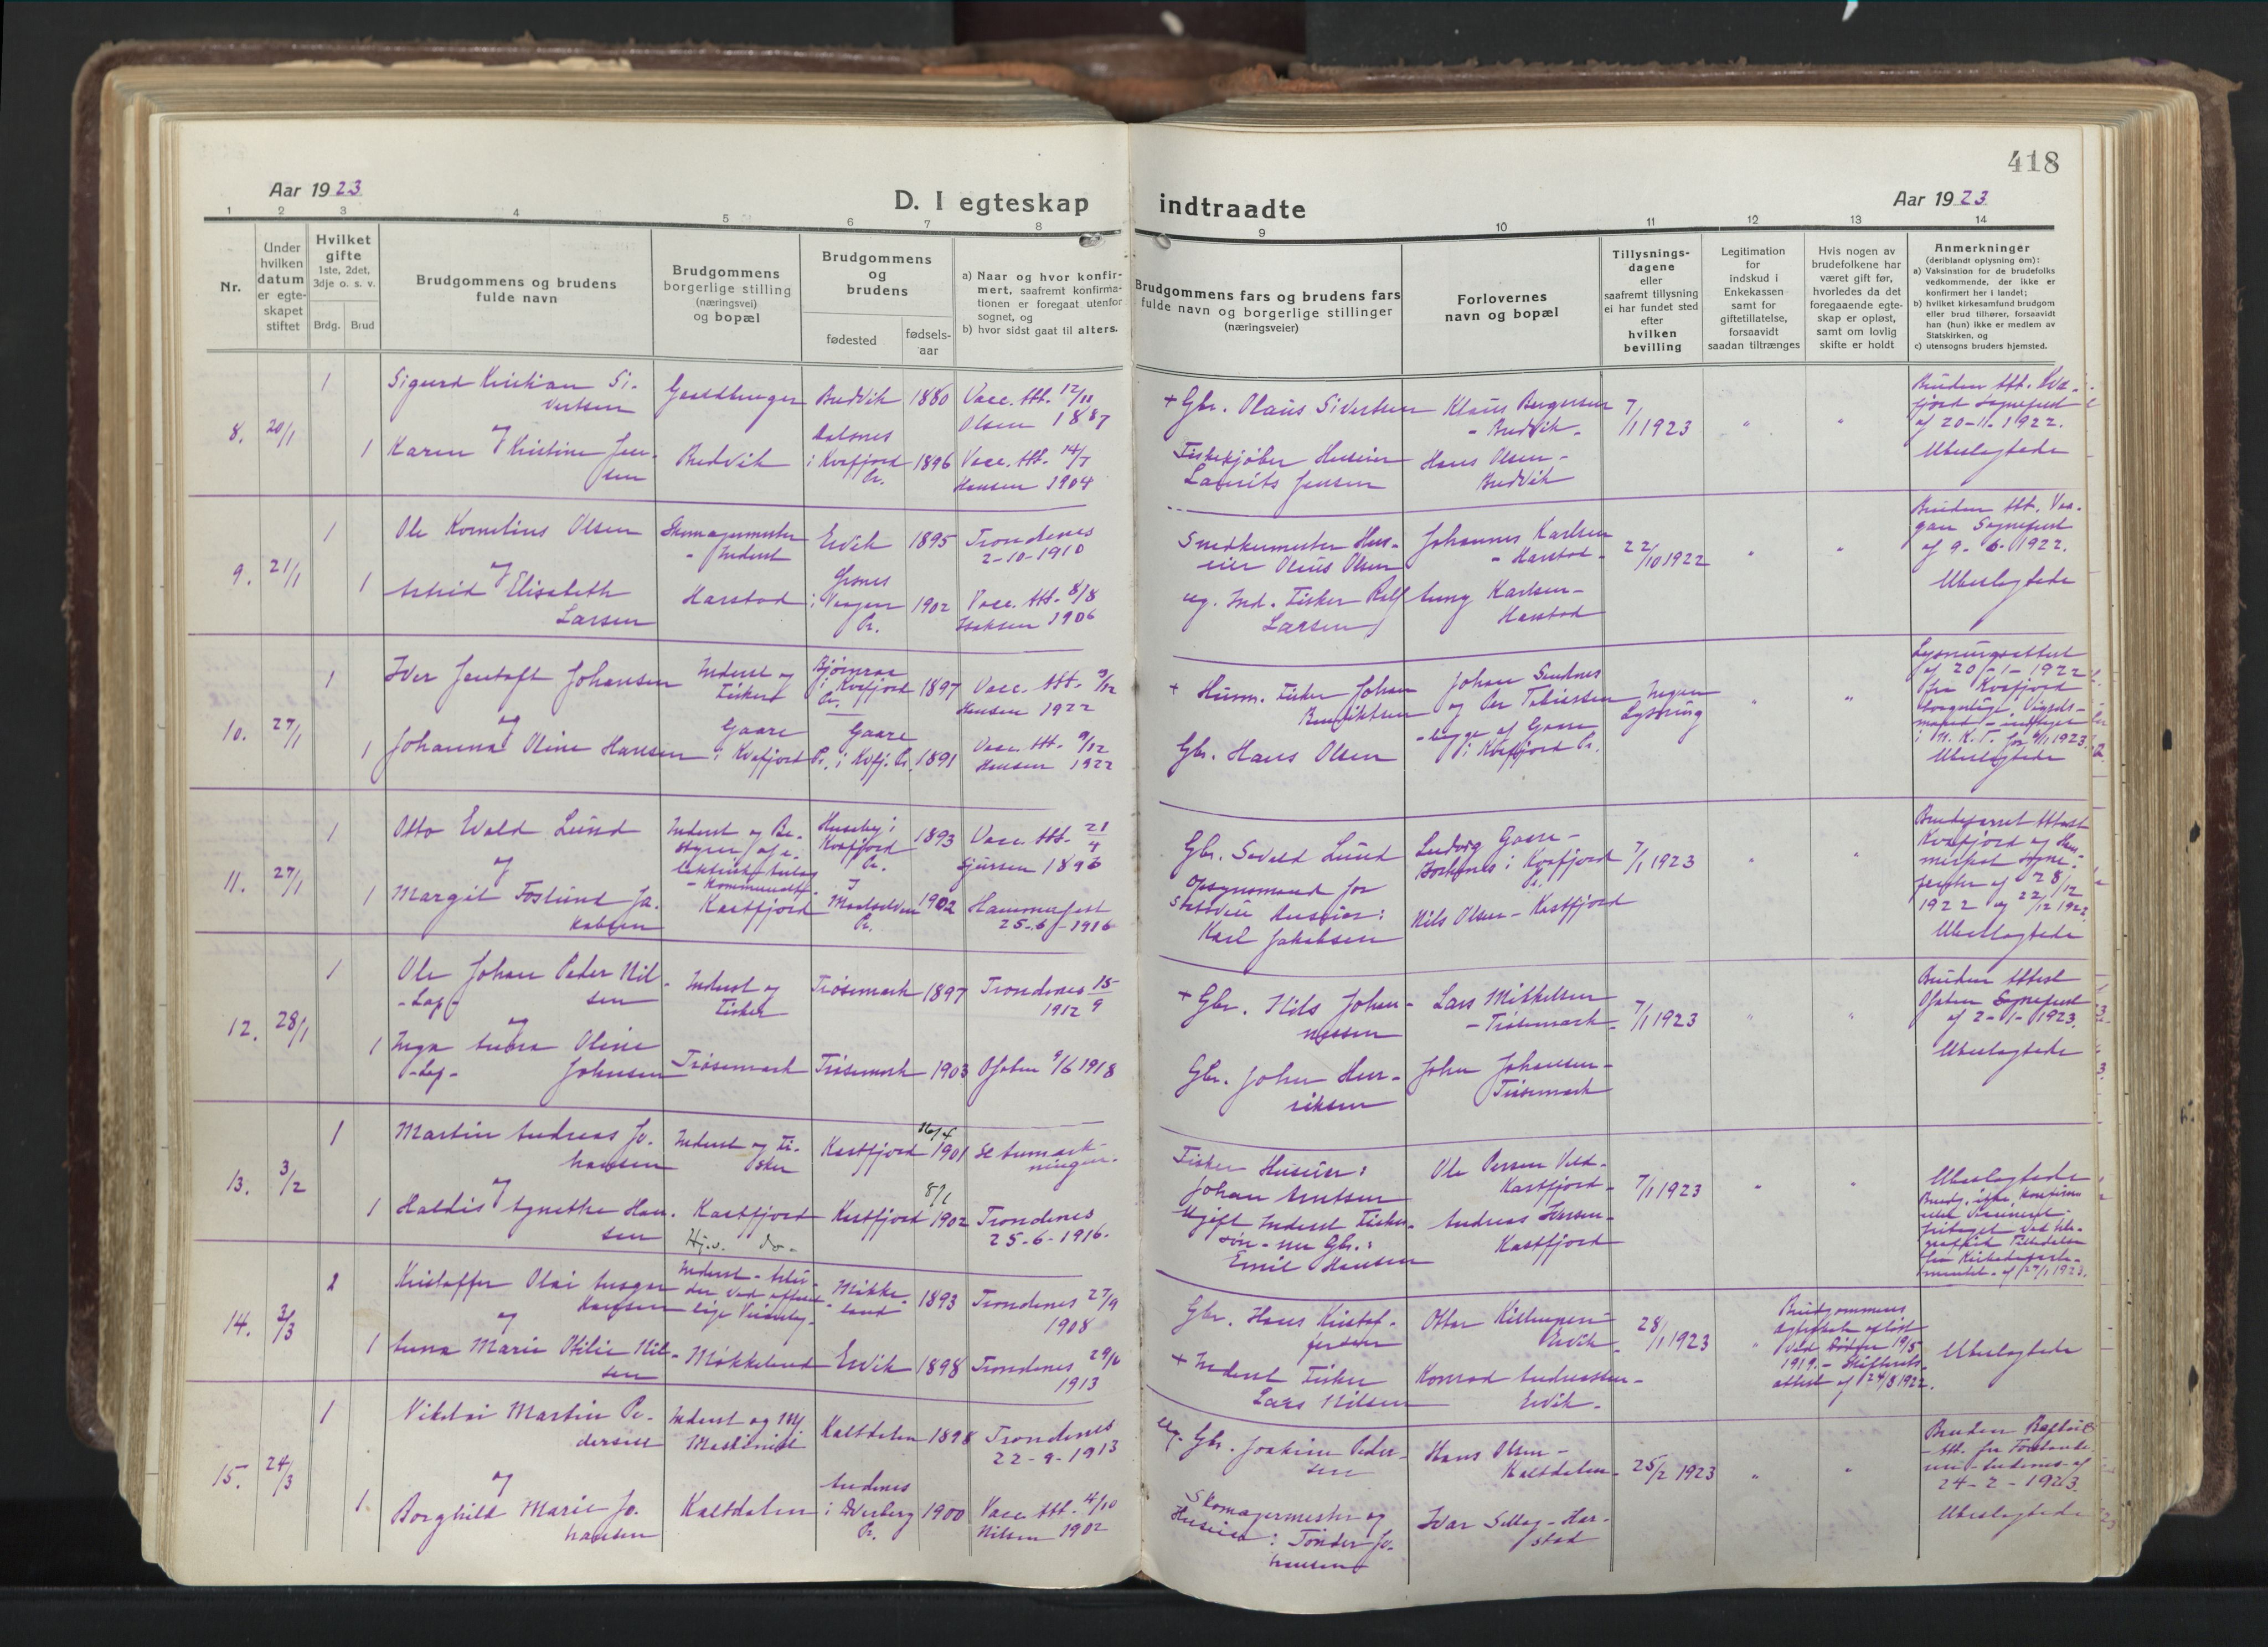 418
Aar 1923
D. I egteskap indtraadte
Aar 1923
1 2 3 4 5 6 7 8 9 10 11 12 13 14
Nr.
Under hvilken datum er egteskapet stiftet
Hvilket gifte
1ste, 2det, 3dje o. s. v.
Brdg. Brud
Brudgommens og brudens fulde navn
Brudgommens borgerlige stilling (næringsvei) og bopæl
Brudgommens og brudens
fødested
fødsels-aar
a) Naar og hvor konfirmert, saafremt konfirmationen er foregaat utenfor sognet, og
b) hvor sidst gaat til alters.
Brudgommens fars og brudens fars fulde navn og borgerlige stillinger (næringsveier)
Forlovernes navn og bopæl
Tillysningsdagene eller saafremt tillysning ei har fundet sted efter hvilken bevilling
Legitimation for indskud i Enkekassen samt for giftetillatelse, forsaavidt saadan tiltrænges
Hvis nogen av brudefolkene har været gift før, hvorledes da det foregaaende egteskap er opløst, samt om lovlig skifte er holdt
Anmerkninger (deriblandt oplysning om):
a) Vaksination for de brudefolks vedkommende, der ikke er konfirmert her i landet;
b) hvilket kirkesamfund brudgom eller brud tilhører, forsaavidt han (hun) ikke er medlem av Statskirken, og
c) utensogns bruders hjemsted.
8. 20/1
1 Sigurd Kristian Sivertsen
Gaardbruger Bredvik 1880 Vacc. Att. 12/11
Olsen 1887
og
1 Karen Kristine Jensen
Bredvik
i Kvæfjord Pr. 1896 Vacc. Att. 14/7
Hansen 1904
+ Gbr. Olaus Sivertsen
Fiskekjøber Huseier
Laurits Jensen
Klaus Bergersen
- Bredvik -
Hans Olsen -
Bredvik
7/1 1923
Bruden Att. Kvæfjord Sognepræst
af 20-11-1922.
Ubeslægtede
9. 21/1
1 Ole Kornelius Olsen
Skomagermester
- Inderst
Ervik 1895 Trondenes
2-10-1910
og
1 Astrid Elisabeth
Larsen
Harstad
i Vaagan Pr. 1902 Vacc. Att. 8/8
Isaksen 1906
Snedkermester Huseier Olaus Olsen
ug. Ind. Fisker
Larsen
Johannes Karlsen
- Harstad -
Karlsen -
Harstad
22/10 1922
Bruden Att. Vaagan Sognepræst
af 9-6-1922.
Ubeslægtede
10. 27/1
1 Iver Jentoft Johansen
Inderst og Fisker
i Kvæfjord Pr. 1897 Vacc. Att. 9/12
Hansen 1922
og
1 Johanna Oline Hansen
Gaare
i Kvæfjord Pr.
Gaare
i Kvfj. Pr. 1891 Vacc. Att. 9/12
Hansen 1922
+ Husm. Fisker Johan
Gbr. Hans Olsen
Johan Sandnes
og Per Tobiassen
- begge af Gaare
i Kvæfjord Pr.
Ingen Lysning
Lysningsattest
af 20-1-1922
fra Kvæfjord
Ubeslægtede
11. 27/1
1 Otto Evald Lund
Inderst og Bestyrer af
Husebyi Kvæfjord Pr. 1893 Vacc. Att. 21/4
og
1 Margit Foslund Jakobsen
Kastfjord
Maalselven Pr. 1902 Hammerfest
25-6-1916
Gbr. Sevald Lund
Opsynsmand for
Karl Jakobsen
Ludvig Gaare -
i Kvæfjord Pr.
Nils Olsen - Kastfjord
7/1 1923
Brudeparret Attest
Kvæfjord og
1922 og 22/12 1922
Ubeslægtede
12. 28/1
1 Ole Johan Peder Nilsen
- Lap -
Inderst og Fisker
Trøsemark 1897 Trondenes 15/9
1912
og
1 Inga Anna Oline
- Lap - Johnsen
Trøsemark Trøsemark 1903 Ofoten 9/6 1918
+ Gbr. Nils Johannessen
Gbr. John Henriksen
Lars Mikkelsen
- Trøsemark -
John Johansen -
Trøsemark
7/1 1923
Bruden Attest
Ofoten Sognepræst
af 2-1-1923.
Ubeslægtede
13. 3/2
1 Martin Andreas Johansen
Inderst og Fisker
Kastfjord 16/4 1901 Se Anmærkningen.
og
1 Haldis Agnethe Hansen
Kastfjord Kastfjord 8/1 1902 Trondenes
25-6-1916.
Hj.v. do -
Fisker Huseier:
Johan Arntsen
Ugift Inderst Fisker
søn - nu Gbr.:
Emil Hansen
Ole Persen Vold -
Kastfjord -
Andreas Hansen -
Kastfjord
7/1 1923
Ubeslægtede
Brudg. ikke konfirmeret
af 27/1 1923.
14. 3/3
2 Kristoffer Olai Ansgar
Hansen
Inderst - Arbeider ved offentlige Veianlæg -
Møkkeland 1893 Trondenes 27/9
1908
og
1 Anna Marie Otilie Nilsen
Møkkeland Ervik 1898 Trondenes 29/6
1913
Gbr. Hans Kristoffersen
+ Inderst Fisker
Lars Nilsen
Ottar Killengren
Ervik -
Konrad Andreassen -
Ervik -
28/1 1923
Brudgommens
Egteskab opløst
ved Døden 19/5
1919. - Skifterets-
attest af 24/3 1922.
Ubeslægtede
15. 24/3
1 Nikolai Martin Pedersen
Inderst og
Maskinist
Kaltdalen 1898 Trondenes
22-9-1913
og
1 Borghild Marie Johansen
Kaltdalen
Andenes
i Dverberg Pr. 1900 Vacc. Att. 4/10
Nilsen 1902
ug. Gbr. Joakim Pedersen
Skomagermester og
Huseier: Tønder Johansen
Hans Olsen -
Kaltdalen -
Ivar Selleg - Harstad
25/2 1923
Bruden
- Att. fra
Andenes af
24-2-1923.
Ubeslægtede